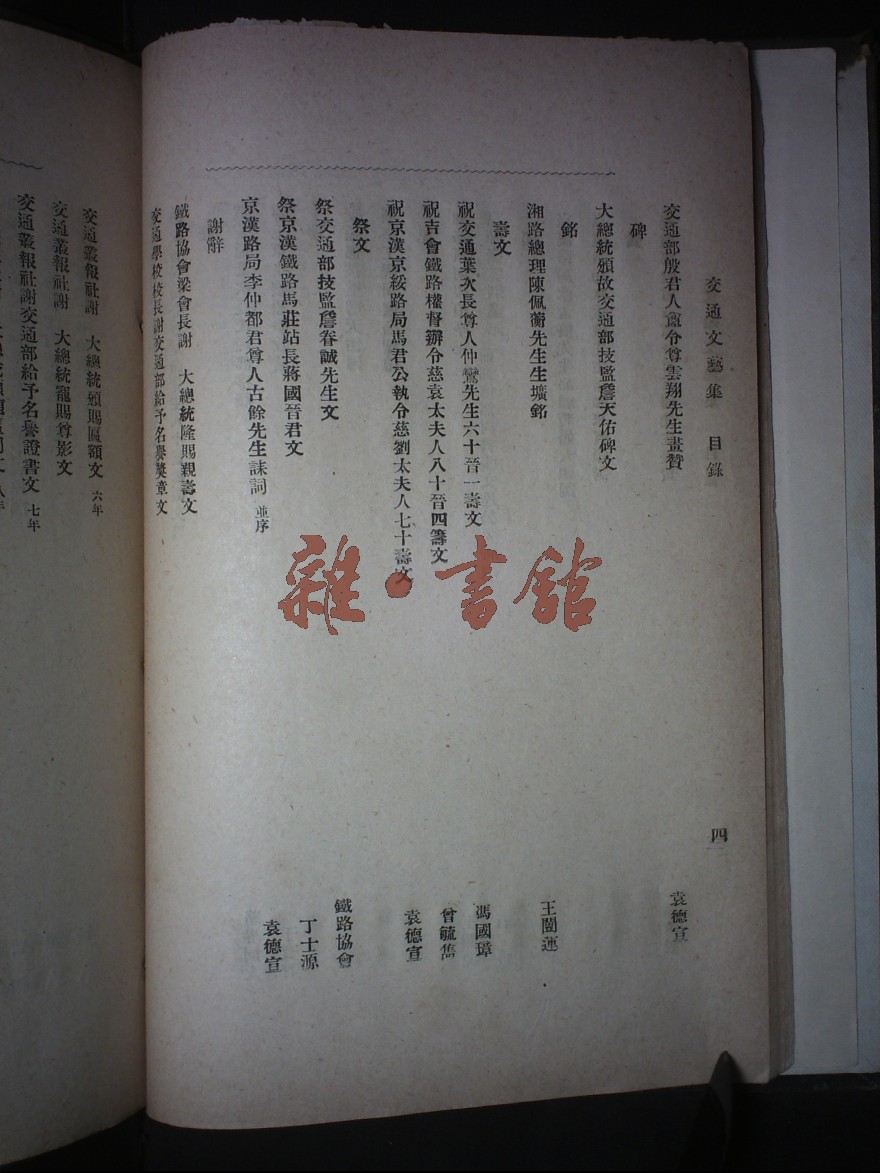 交通文藝集 目錄 四
交通部殷君人盦令尊雲翔先生畫贊 袁德宣
碑
大總統頒故交通部技監詹天佑碑文
銘
湘路總理陳佩蘅先生生壙銘 王闓運
壽文
祝交通葉次長尊人仲鸞先生六十晉一壽文 馮國璋
祝吉會鐵路權督辦令慈袁太夫人八十晉四籌文 曾毓雋
祝京漢京綏路局馬君公執令慈劉太夫人七十壽文 袁德宣
祭文
祭交通部技監詹眷誠先生文 鐵路協會
祭京漢鐵路馬莊站長蔣國晉君文 丁士源
京漢路局李仲都君尊人古餘先生誄詞 並序 袁德宣
謝辭
鐵路協會梁會長謝 大總統隆賜親壽文
交通學校校長謝交通部給予名譽獎章文
交通叢報社謝 大總統頒賜匾額文 六年
交通叢報社謝 大總統寵賜尊影文
交通叢報社謝交通部給予名譽證書文 七年
雜·書館